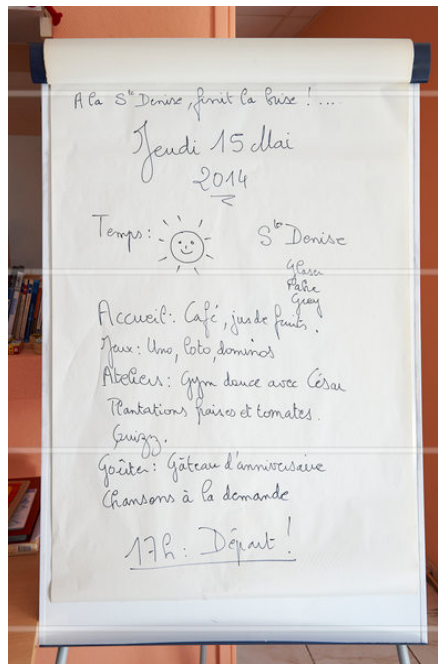 A la Ste Denise, finit la bise ! ....
Jeudi 15 Mai
2014
Temps :
Ste Denise
Accueil : Café, jus de fruits.
Jeux : Uno, loto, dominos
Ateliers : Gym douce avec César
Plantations fraises et tomates.
Quizz.
Goûter : Gâteau d'anniversaire
Chansons à la demande
17h : Départ !